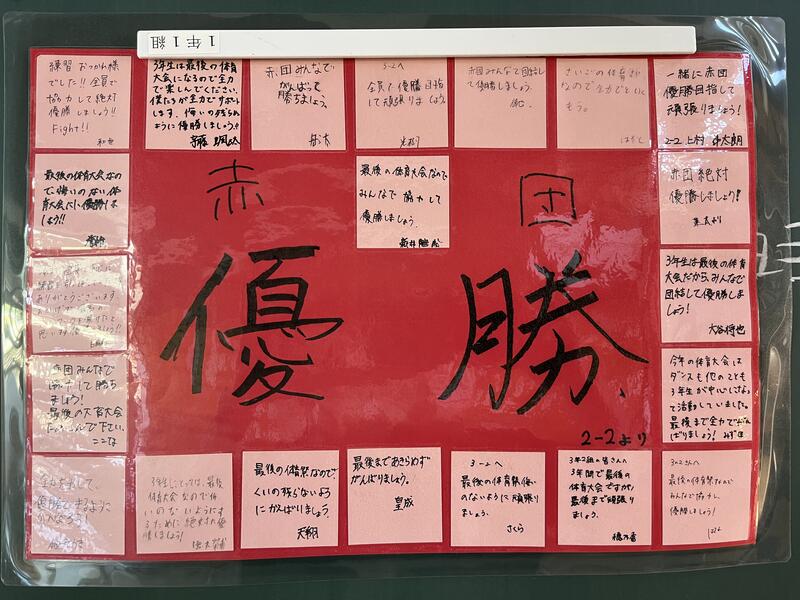 1年1組
練習おつかれ様
でした!!全員で
協力して絶対
優勝しましょう!!
Fight!!
3年生は最後の体育
大会になるので全力
で楽しんでください。
僕たちが全力でサポート
します。悔いの残らない
ように優勝しましょう。
赤団みんなで
がんばって
勝ちましょう。
3-2へ
全員で優勝目指
して頑張りましょう。
赤団みんなで団結し
て優勝しましょう。
さいごの体育さい
なので全力でといく
もう。
一緒に赤団
優勝目指して
頑張りましょう!
2-2 上村
最後の体育大会なの
で、悔いのない体
育大会にし優勝しま
しょう!!
赤団
最後の体育大会なので
みんなで協力して
優勝しましょう。
赤団絶対
優勝しましょう!
優勝
3年生は最後の体育
大会だから、みんなで
団結して優勝しま
しょう!
大谷将也
ありがとうございます
赤団みんなで
協力して勝ち
ましょう!
最後の体育大会
下さい。
ここな
今年の体育大会は
ダンスも他のことも
3年生が中心になっ
て活動していました。
最後まで全力でがん
ばりましょう!
2-2より
全力を出して、
優勝できるように
がんばろう!
3年生にとっては、最後の
体育大会なので悔
いのないようにす
るために絶対に優
勝しましょう!
最後の体育祭なので、
くいの残らないよう
にがんばりましょう。
天翔
最後まであきらめず
がんばりましょう。
皇成
3-2へ
最後の体育祭悔い
のないように頑張り
ましょう。
さくら
3年2組の皆さんへ
3年間で最後の
体育大会ですが、
最後まで頑張り
ましょう。
穂乃香
3の2さんへ
最後の体育祭なので
みんなで協力し、
優勝しましょう!